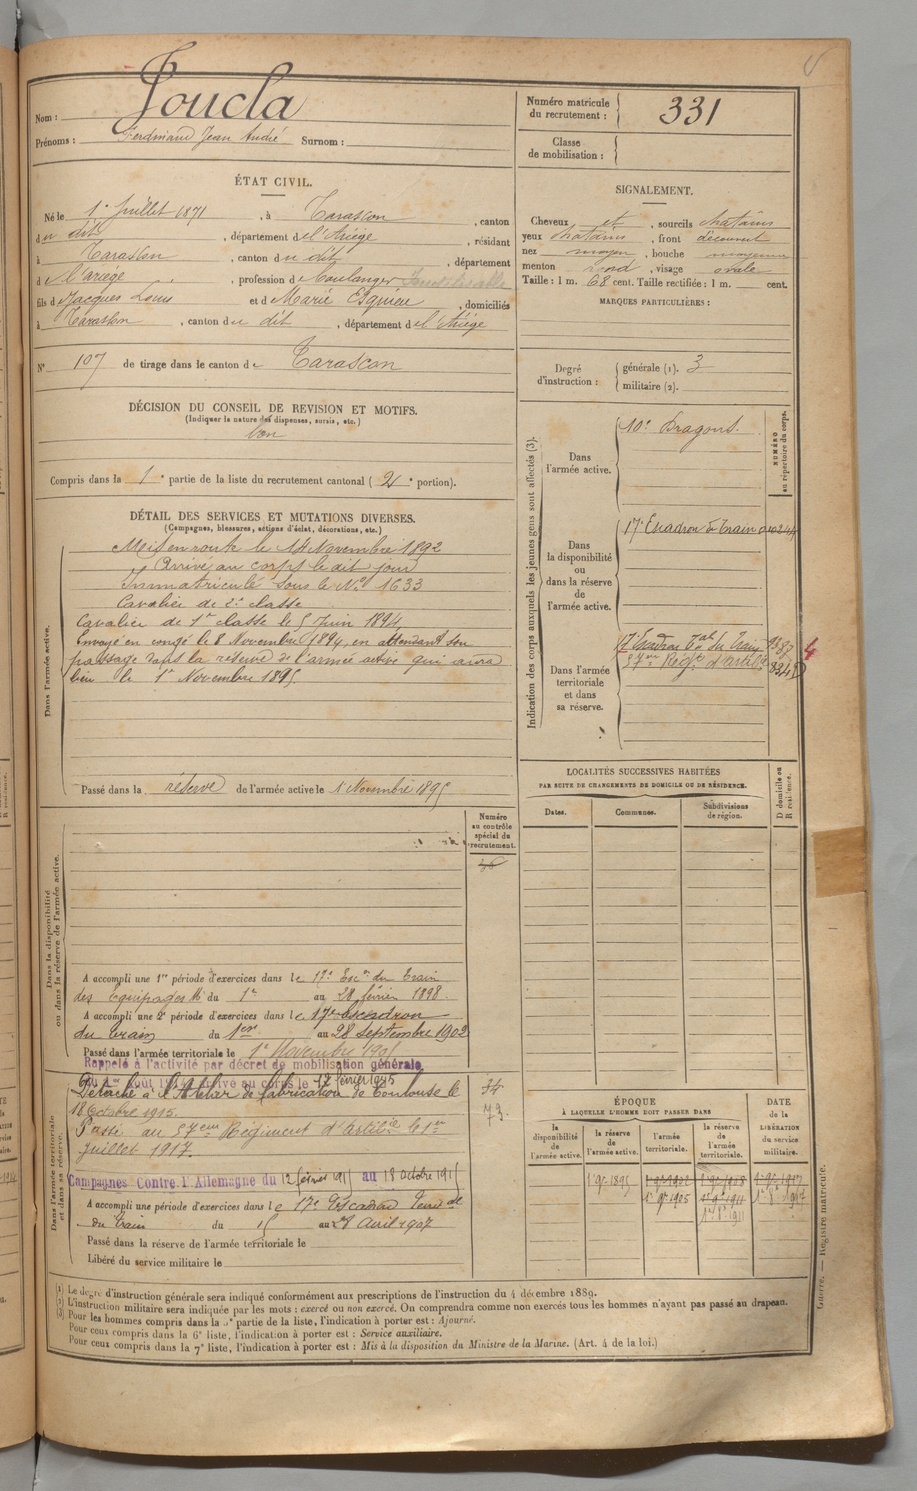 Nom : Joucla
Prénoms : Ferdinand Jean André Surnom :
Numéro matricule du recrutement : 331
Classe de mobilisation :
ÉTAT CIVIL.
Né le 1er Juillet 1871, à Tarascon, canton
du dit, département de l'Ariège, résidant
à Tarascon, canton du dit, département
d l'ariège, profession de Boulanger
fils de Jacques Louis et de Marie Esquirié, domiciliés
à Tarascon, canton du dit, département de l'Ariège
N° 107 de tirage dans le canton de Tarascon
DÉCISION DU CONSEIL DE REVISION ET MOTIFS.
(Indiquer la nature des dispenses, sursis, etc.)
bon
Compris dans la 1e partie de la liste du recrutement cantonal (2e portion).
DÉTAIL DES SERVICES ET MUTATIONS DIVERSES.
(Campagnes, blessures, actions d'éclat, décorations, etc.)
Dans l'armée active.
Mis en route le 14 Novembre 1892
Arrivé au corps le dit jour
Immatriculé sous le No 1633
Cavalier de 2e classe
Cavalier de 1re classe le 5 Juin 1894
Envoyé en congé le 8 Novembre 1894, en attendant son
passage dans la réserve de l'armée active qui aura
lieu le 1er Novembre 1895
Passé dans la réserve de l'armée active le 1 Novembre 1895
Numéro au contrôle spécial du recrutement.
Dans la disponibilité ou dans la réserve de l'armée active.
A accompli une 1re période d'exercices dans le 17e Escon du Train
des équipages Mres du 1er au 28 février 1898.
A accompli une 2e période d'exercices dans le 17e Escadron
du train du 1er au 28 Septembre 1902
Passé dans l'armée territoriale le 1er Novembre 1905
Rappelé à l'activité par décret de mobilisation générale
du 1er août 1914 arrivé au corps le 12 février 1915
Détaché à l'Atelier de fabrication de Toulouse le
18 Octobre 1915.
Passé au 57eme Régiment d'artillie le 1er
Juillet 1917.
34
73
Campagnes Contre l'Allemagne du 12 février 1915 au 18 octobre 1915
Dans l'armée territoriale et dans sa réserve.
A accompli une période d'exercices dans le 17e Escadron Territal
du Train du 15 au 28 Avril 1907
Passé dans la réserve de l'armée territoriale le
Libéré du service militaire le
SIGNALEMENT.
Cheveux et, sourcils chatains
yeux chatains, front découvert
nez moyen, bouche moyenne
menton rond, visage ovale
Taille : 1 m. 68 cent. Taille rectifiée : 1 m. cent.
MARQUES PARTICULIÈRES :
Degré d'instruction :
générale (1). 3
militaire (2).
Indication des corps auxquels les jeunes gens sont affectés (3).
NUMÉRO au répertoire du corps.
Dans l'armée active.
10e Dragons.
Dans la disponibilité ou dans la réserve de l'armée active.
17e Escadron du Train
Dans l'armée territoriale et dans sa réserve.
17e Escadron Tal du Train
57me Régt d'artillie
LOCALITÉS SUCCESSIVES HABITÉES
PAR SUITE DE CHANGEMENTS DE DOMICILE OU DE RÉSIDENCE.
Dates.
Communes.
Subdivisions de région.
D domicile ou R résidence.
ÉPOQUE
À LAQUELLE L'HOMME DOIT PASSER DANS
la disponibilité de l'armée active.
la réserve de l'armée active.
l'armée territoriale.
la réserve de l'armée territoriale.
DATE de la LIBÉRATION du service militaire.
1er 9e 1895
1er 9e 1905
1er 9e 1911
(1) Le degré d'instruction générale sera indiqué conformément aux prescriptions de l'instruction du 4 décembre 1889.
(2) L'instruction militaire sera indiquée par les mots : exercé ou non exercé. On comprendra comme non exercés tous les hommes n'ayant pas passé au drapeau.
(3) Pour les hommes compris dans la 5e partie de la liste, l'indication à porter est : Ajourné.
Pour ceux compris dans la 6e liste, l'indication à porter est : Service auxiliaire.
Pour ceux compris dans la 7e liste, l'indication à porter est : Mis à la disposition du Ministre de la Marine. (Art. 4 de la loi.)
Guerre. — Registre matricule.